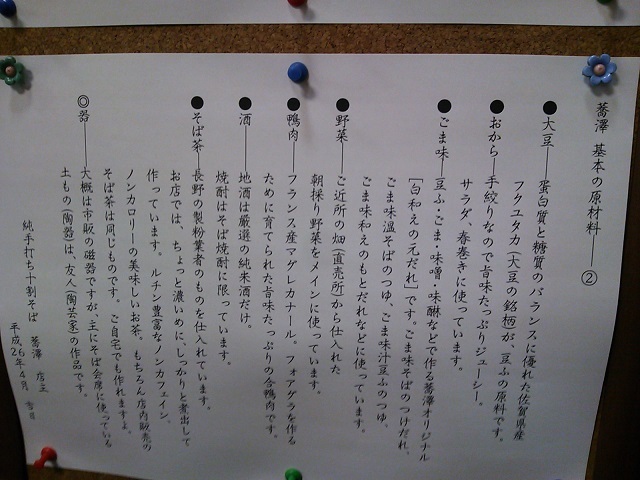 蕎澤 基本の原材料――②
●大豆――蛋白質と糖質のバランスに優れた佐賀県産
フクユタカ(大豆の銘柄)が、豆ふの原料です。
●おから――手絞りなので旨味たっぷりジューシー。
サラダ、春巻きに使っています。
●ごま味――豆ふ・ごま・味噌・味醂などで作る蕎澤オリジナル
「白和えの元だれ」です。ごま味そばのつけだれ、
ごま味温そばのつゆ、ごま味汁豆ふのつゆ、
ごま味和えのもとだれなどに使っています。
●野菜――ご近所の畑(直売所)から仕入れた
朝採り野菜をメインに使っています。
●鴨肉――フランス産マグレカナール。フォアグラを作る
ために育てられた旨味たっぷりの合鴨肉です。
●酒――地酒は厳選の純米酒だけ。
焼酎はそば焼酎に限っています。
●そば茶――長野の製粉業者のものを仕入れています。
お店では、ちょっと濃いめに、しっかりと煮出して
作っています。ルチン豊富なノンカフェイン、
ノンカロリーの美味しいお茶。もちろん店内販売の
そば茶は同じものです。ご自宅でも作れますよ。
◎器――大概は市販の磁器ですが、主にそば会席に使っている
土もの(陶器)は、友人(陶芸家)の作品です。
純手打ち十割そば 蕎澤 店主
平成26年4月 吉日